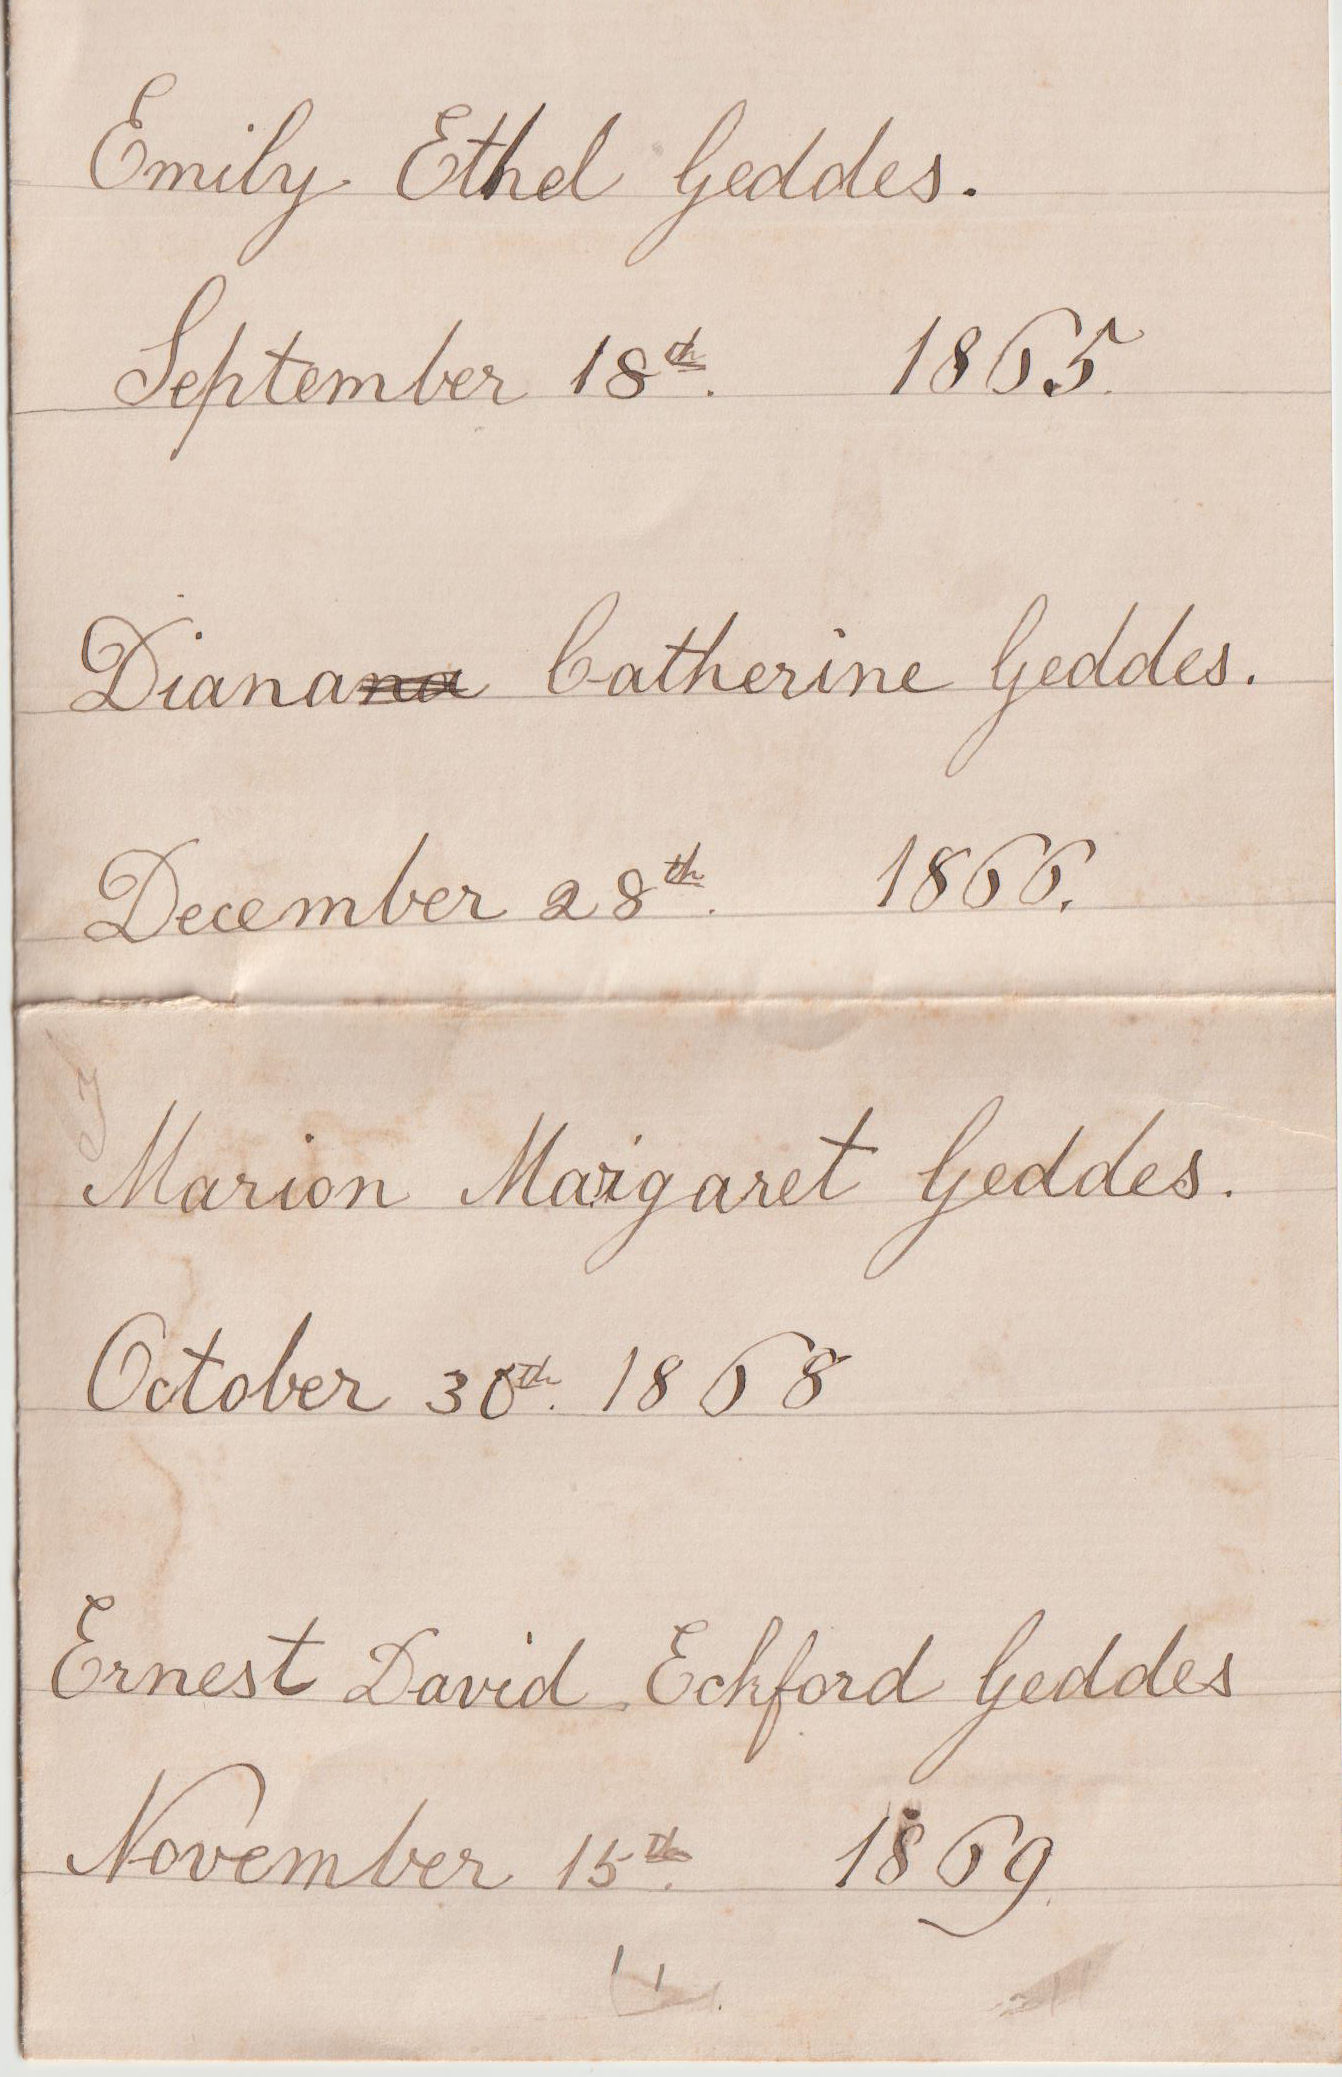 Emily Ethel Geddes.
September 18th. 1865.
Diana Catherine Geddes.
December 28th. 1866.
Marion Margaret Geddes.
October 30th. 1868
Ernest David Eckford Geddes
November 15th. 1869.